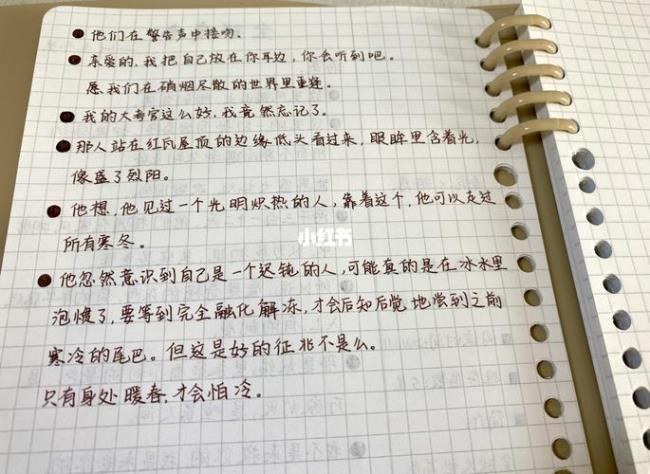 他们在警告声中接吻.
亲爱的,我把自己放在你耳边,你会听到吧.
愿我们在硝烟尽散的世界里重逢.
我的大考官这么好,我竟然忘记了.
那人站在红瓦屋顶的边缘低头看过来,眼眸里含着光,
像盛了烈阳。
他想,他见过一个光明炽热的人,靠着这个,他可以走过
所有寒冬。
小红书
他忽然意识到自己是一个迟钝的人,可能真的是在冰水里
泡惯了,要等到完全融化解冻,才会后知后觉地尝到之前
寒冷的尾巴。但这是好的征兆不是么。
只有身处暖春,才会怕冷。